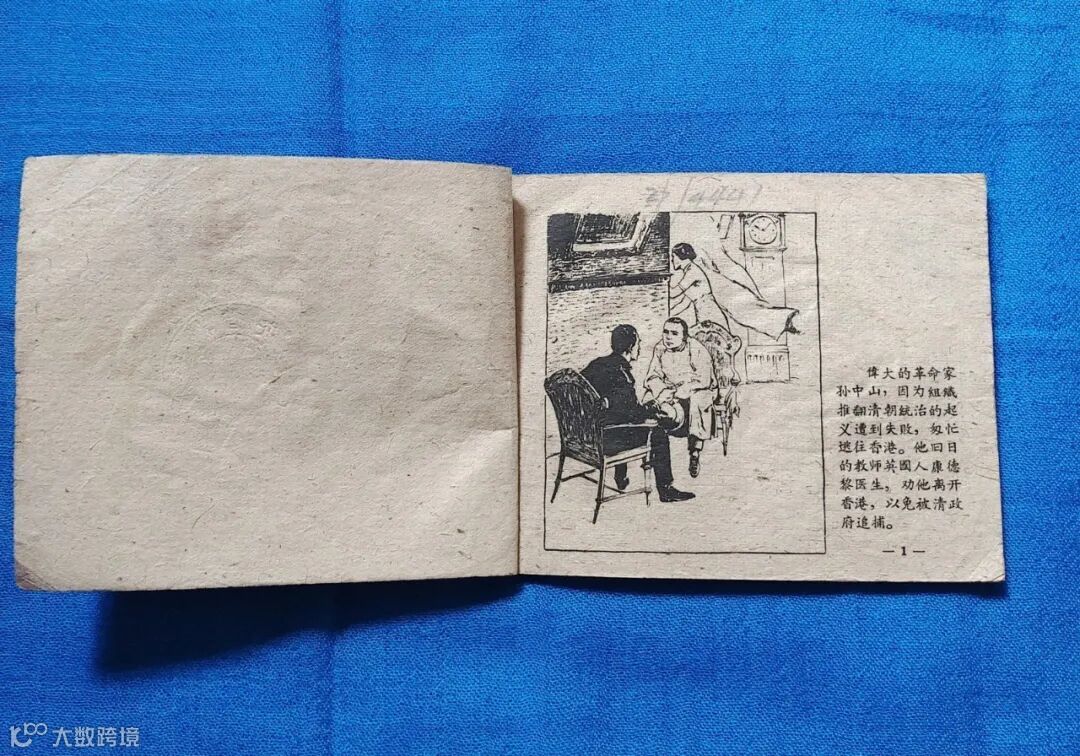 偉大的革命家
孙中山，因为組織
推翻清朝統治的起
义遭到失敗，匆忙
逃往香港。他旧日
的教师英國人康德
黎医生，劝他离开
香港，以免被清政
府追捕。
—1—
大数跨境